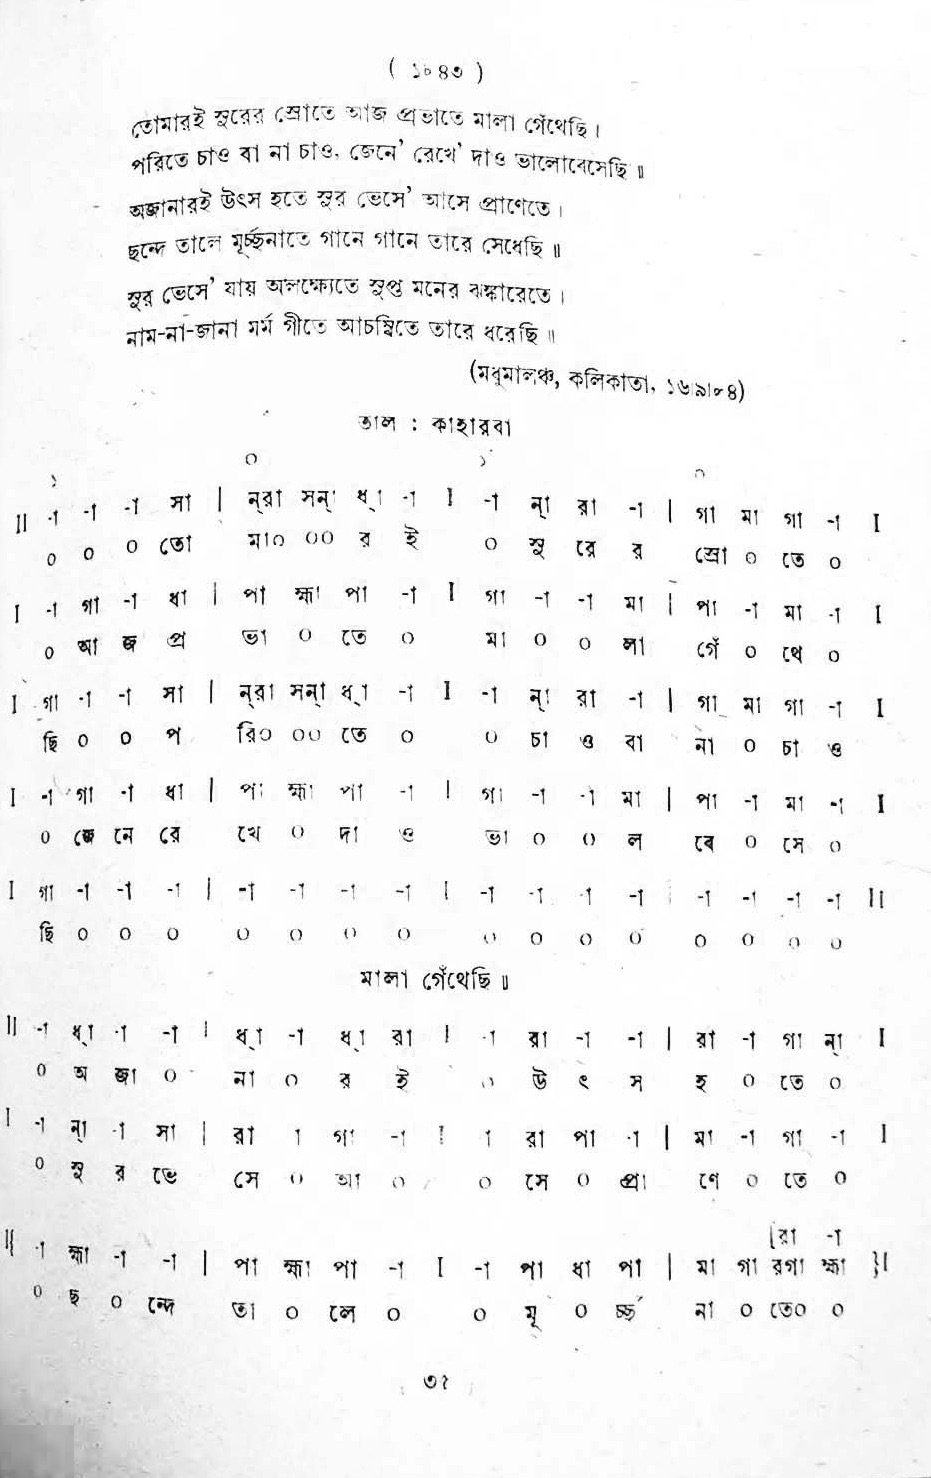 ( ১৮৪৩ )
তোমারই সুরের স্রোতে আজ প্রভাতে মালা গেঁথেছি।
পরিতে চাও বা না চাও, জেনে' রেখে' দাও ভালোবেসেছি॥
অজানারই উৎস হতে সুর ভেসে' আসে প্রাণেতে।
ছন্দে তালে মূর্চ্ছনাতে গানে গানে তারে সেধেছি॥
সুর ভেসে' যায় অলক্ষ্যেতে সুপ্ত মনের ঝঙ্কারেতে।
নাম-না-জানা মর্ম গীতে আচম্বিতে তারে ধরেছি॥
(মধুমালঞ্চ, কলিকাতা, ১৬।৯।৮৪)
তাল : কাহারবা
১ ০ ১ ০
II -া -া -া সা | ন্‌রা সন্‌া ধ্‌া -া I -া ন্‌া রা -া | গা মা গা -া I
০ ০ ০ তো মা০ ০০ র ই ০ সু রে র স্রো ০ তে ০
I -া গা -া ধা | পা হ্মা পা -া I গা -া -া মা | পা -া মা -া I
০ আ জ প্র ভা ০ তে ০ মা ০ ০ লা গেঁ ০ থে ০
I গা -া -া সা | ন্‌রা সন্‌া ধ্‌া -া I -া ন্‌া রা -া | গা মা গা -া I
ছি ০ ০ প রি০ ০০ তে ০ ০ চা ও বা না ০ চা ও
I -া গা -া ধা | পা হ্মা পা -া I গা -া -া মা | পা -া মা -া I
০ জে নে রে খে ০ দা ও ভা ০ ০ ল বে ০ সে ০
I গা -া -া -া | -া -া -া -া I -া -া -া -া | -া -া -া -া II
ছি ০ ০ ০ ০ ০ ০ ০ ০ ০ ০ ০ ০ ০ ০ ০
মালা গেঁথেছি॥
II -া ধ্‌া -া -া | ধ্‌া -া ধ্‌া রা I -া রা -া -া | রা -া গা ন্‌া I
০ অ জা ০ না ০ র ই ০ উ ৎ স হ ০ তে ০
I -া ন্‌া -া সা | রা া গা -া I া রা পা -া | মা -া গা -া I
০ সু র ভে সে ০ আ ০ ০ সে ০ প্রা ণে ০ তে ০
[রা -া
II{ -া হ্মা -া -া | পা হ্মা পা -া I -া পা ধা পা | মা গা রগা হ্মা }I
০ ছ ০ ন্দে তা ০ লে ০ ০ মূ ০ র্চ্ছ না ০ তে০ ০